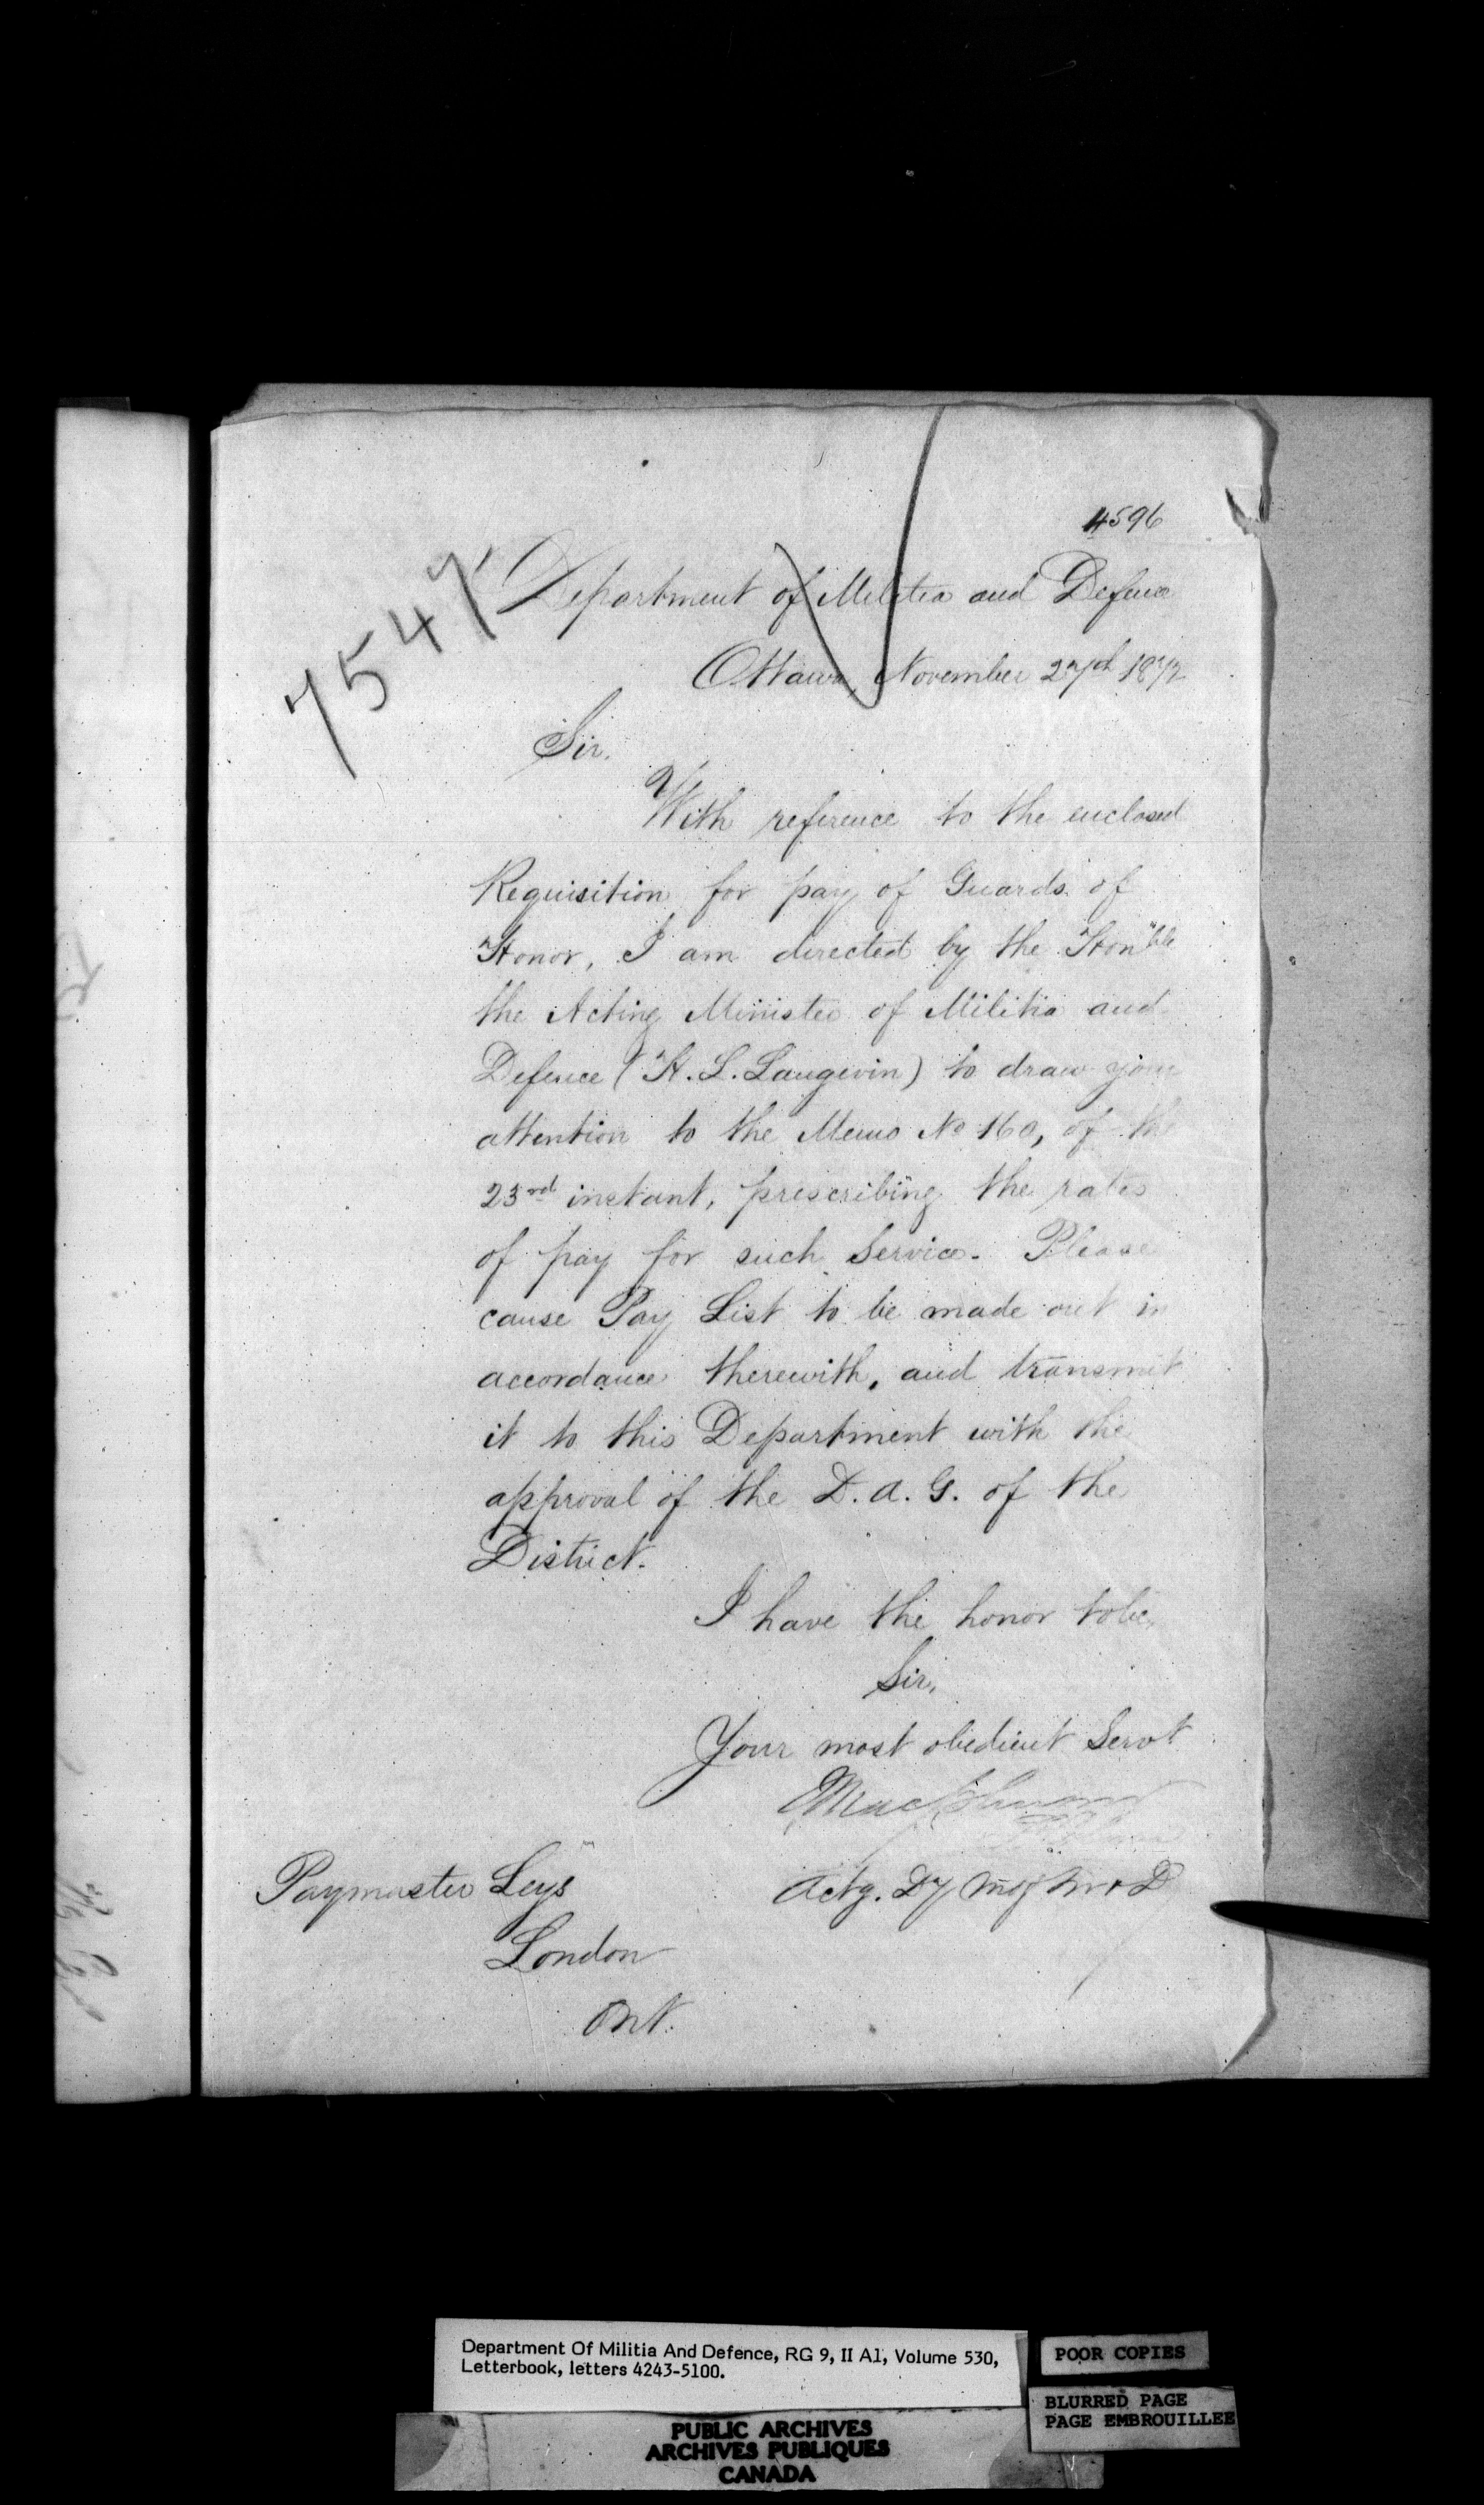 4596
7547
Department of Militia and Defence
Ottawa, November 27th 1872
Sir,
With reference to the enclosed
Requisition for pay of Guards of
Honor, I am directed by the Hon'ble
the Acting Minister of Militia and
Defence (H. L. Langevin) to draw your
attention to the Memo No 160, of the
23rd instant, prescribing the rates
of pay for such Service. Please
cause Pay List to be made out in
accordance therewith, and transmit
it to this Department with the
approval of the D. A. G. of the
District.
I have the honor to be,
Sir,
Your most obedient Servt
Actg. Dy M of M & D
Paymaster Leys
London
Ont.
Department Of Militia And Defence, RG 9, II A1, Volume 530,
Letterbook, letters 4243-5100.
POOR COPIES
BLURRED PAGE
PAGE EMBROUILLEE
PUBLIC ARCHIVES
ARCHIVES PUBLIQUES
CANADA